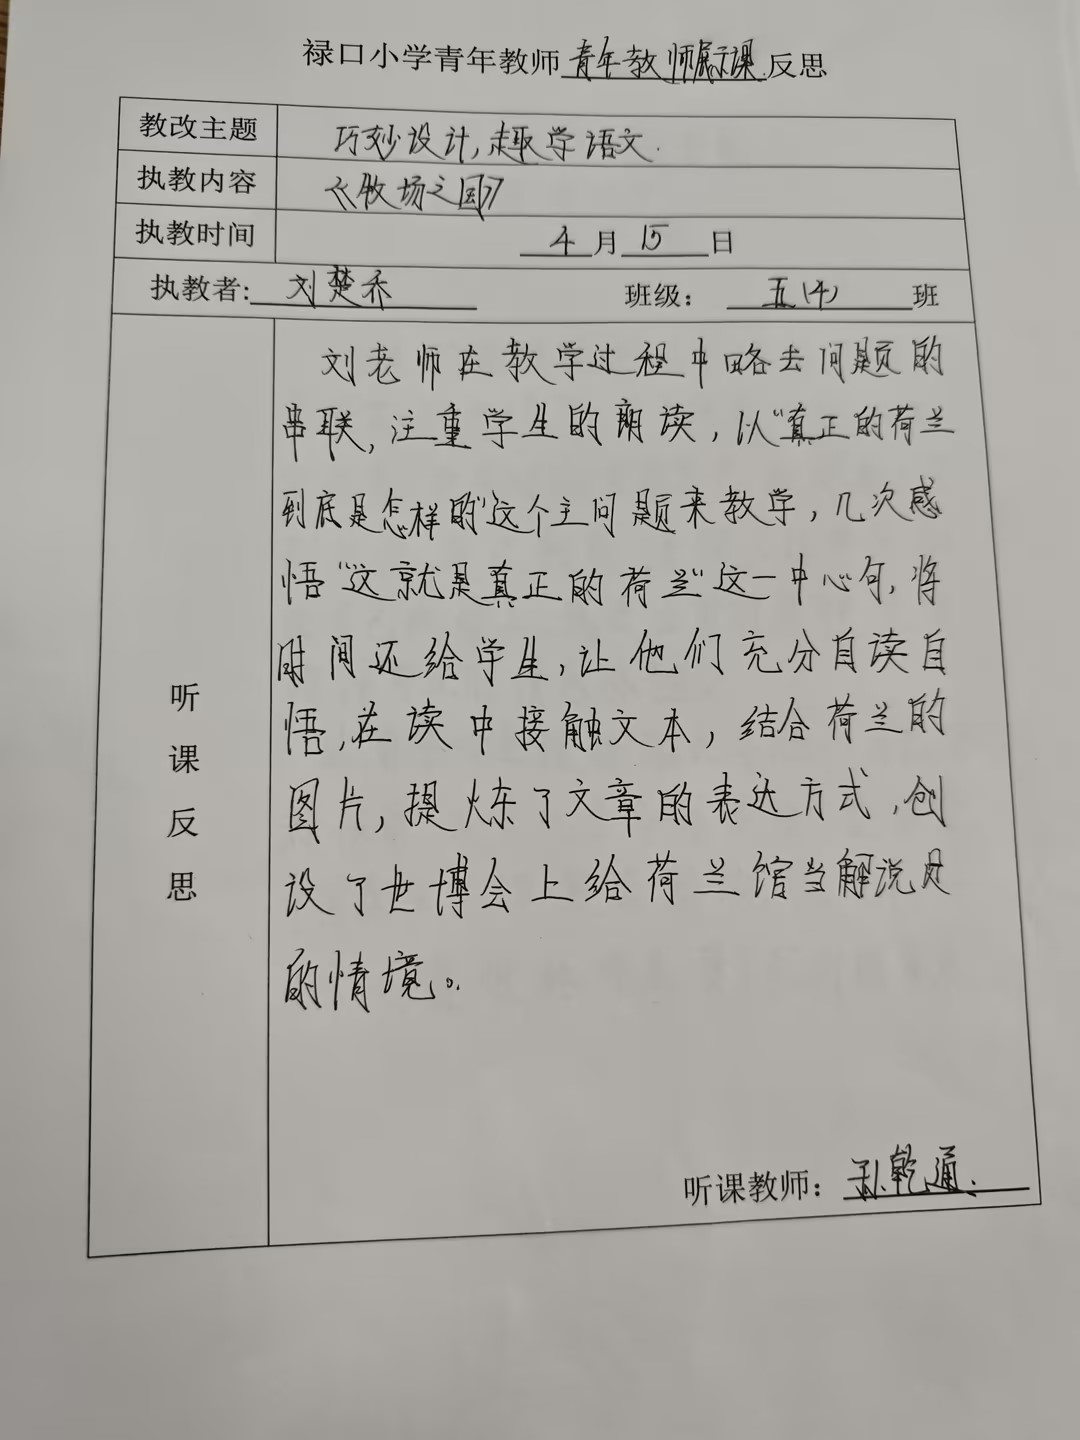 禄口小学青年教师青年教师展示课反思
教改主题 巧妙设计,趣学语文.
执教内容 《牧场之国》
执教时间 4月15日
执教者:刘楚乔 班级:五(4)班
听课反思
刘老师在教学过程中略去问题的
串联,注重学生的朗读,以“真正的荷兰
到底是怎样的”这个主问题来教学,几次感
悟“这就是真正的荷兰”这一中心句,将
时间还给学生,让他们充分自读自
悟,在读中接触文本,结合荷兰的
图片,提炼了文章的表达方式,创
设了世博会上给荷兰馆当解说员
的情境。
听课教师:孙乾通.